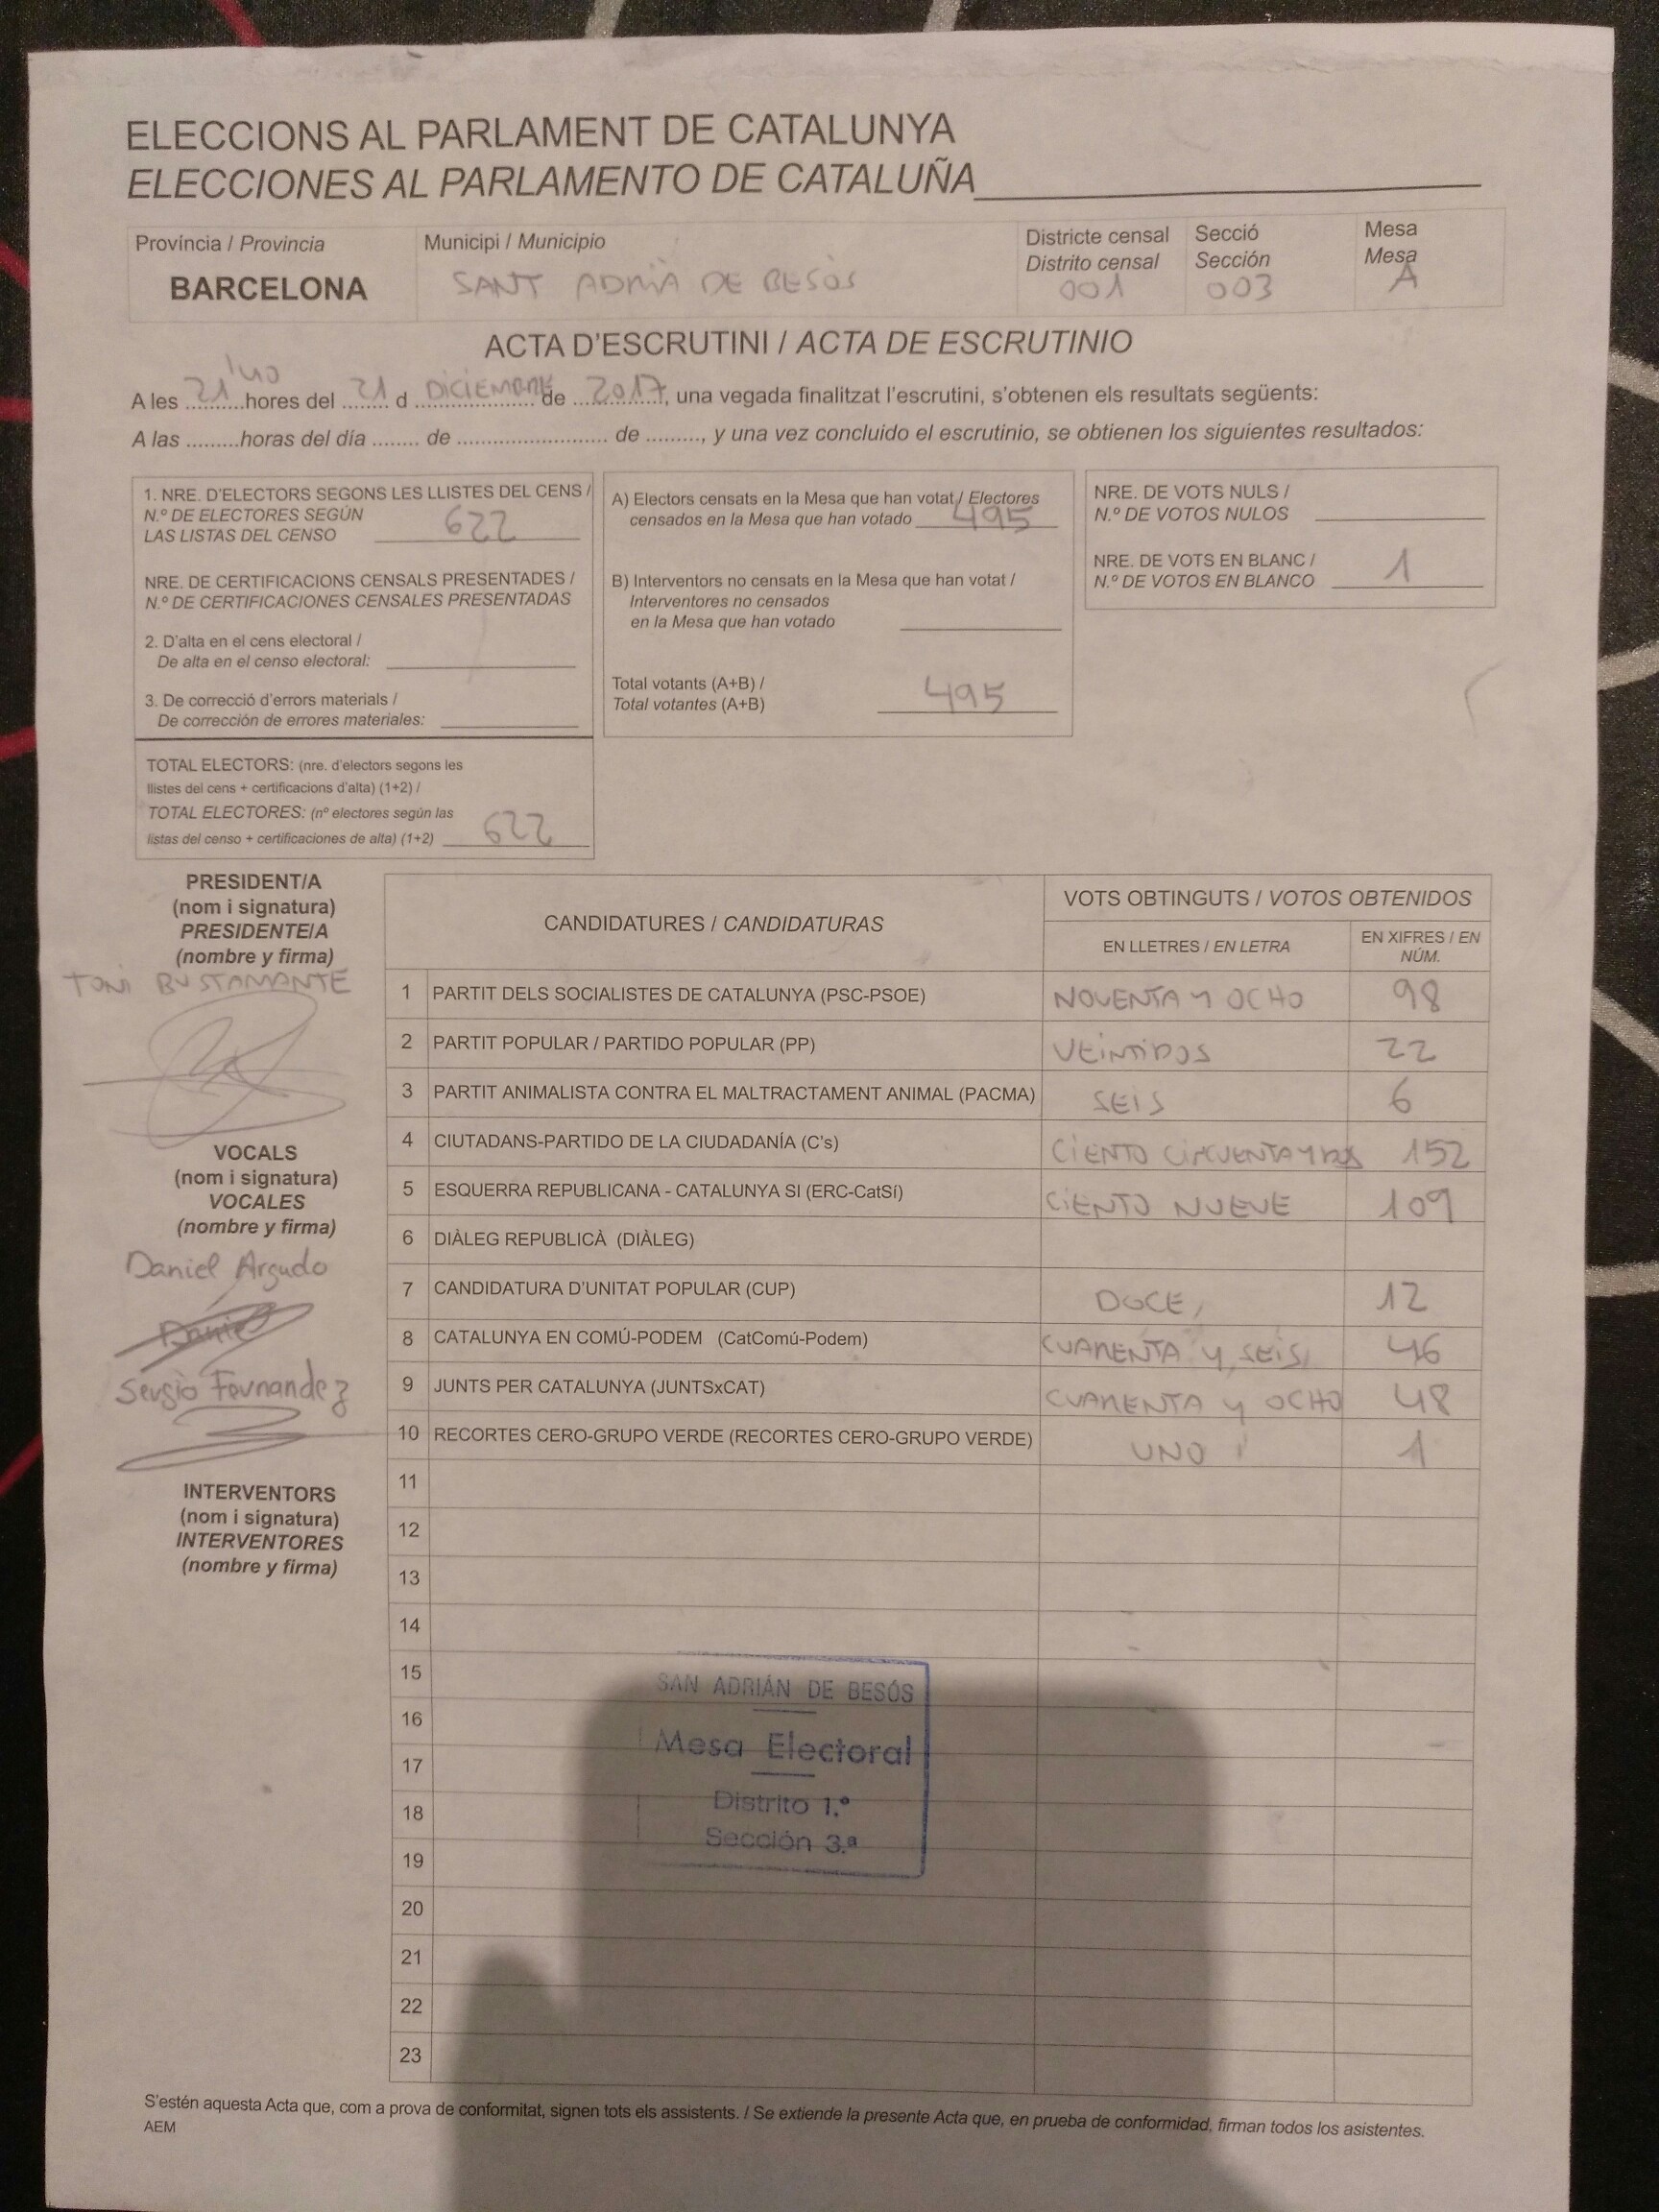 ELECCIONS AL PARLAMENT DE CATALUNYA
ELECCIONES AL PARLAMENTO DE CATALUÑA
Província / Provincia
BARCELONA
Municipi / Municipio
SANT ADRIÀ DE BESÒS
Districte censal
Distrito censal
001
Secció
Sección
003
Mesa
Mesa
A
ACTA D'ESCRUTINI / ACTA DE ESCRUTINIO
A les 21'40 hores del 21 d DICIEMBRE de 2017, una vegada finalitzat l'escrutini, s'obtenen els resultats següents:
A las .........horas del día ........ de ........................ de ........., y una vez concluido el escrutinio, se obtienen los siguientes resultados:
1. NRE. D'ELECTORS SEGONS LES LLISTES DEL CENS /
N.º DE ELECTORES SEGÚN
LAS LISTAS DEL CENSO 622
NRE. DE CERTIFICACIONS CENSALS PRESENTADES /
N.º DE CERTIFICACIONES CENSALES PRESENTADAS
2. D'alta en el cens electoral /
De alta en el censo electoral:
3. De correcció d'errors materials /
De corrección de errores materiales:
TOTAL ELECTORS: (nre. d'electors segons les
llistes del cens + certificacions d'alta) (1+2) /
TOTAL ELECTORES: (nº electores según las
listas del censo + certificaciones de alta) (1+2) 622
A) Electors censats en la Mesa que han votat / Electores
censados en la Mesa que han votado 495
B) Interventors no censats en la Mesa que han votat /
Interventores no censados
en la Mesa que han votado
Total votants (A+B) /
Total votantes (A+B) 495
NRE. DE VOTS NULS /
N.º DE VOTOS NULOS
NRE. DE VOTS EN BLANC /
N.º DE VOTOS EN BLANCO 1
PRESIDENT/A
(nom i signatura)
PRESIDENTE/A
(nombre y firma)
TONI BUSTAMANTE
VOCALS
(nom i signatura)
VOCALES
(nombre y firma)
Daniel Argudo
Sergio Fernandez
INTERVENTORS
(nom i signatura)
INTERVENTORES
(nombre y firma)
CANDIDATURES / CANDIDATURAS
VOTS OBTINGUTS / VOTOS OBTENIDOS
EN LLETRES / EN LETRA
EN XIFRES / EN
NÚM.
1 PARTIT DELS SOCIALISTES DE CATALUNYA (PSC-PSOE) NOVENTA Y OCHO 98
2 PARTIT POPULAR / PARTIDO POPULAR (PP) VEINTIDOS 22
3 PARTIT ANIMALISTA CONTRA EL MALTRACTAMENT ANIMAL (PACMA) SEIS 6
4 CIUTADANS-PARTIDO DE LA CIUDADANÍA (C's) CIENTO CINCUENTA Y DOS 152
5 ESQUERRA REPUBLICANA - CATALUNYA SI (ERC-CatSí) CIENTO NUEVE 109
6 DIÀLEG REPUBLICÀ (DIÀLEG)
7 CANDIDATURA D'UNITAT POPULAR (CUP) DOCE, 12
8 CATALUNYA EN COMÚ-PODEM (CatComú-Podem) CUARENTA Y SEIS 46
9 JUNTS PER CATALUNYA (JUNTSxCAT) CUARENTA Y OCHO 48
10 RECORTES CERO-GRUPO VERDE (RECORTES CERO-GRUPO VERDE) UNO 1
11
12
13
14
15
16
17
18
19
20
21
22
23
SAN ADRIÁN DE BESÓS
Mesa Electoral
Distrito 1.º
Sección 3.ª
S'estén aquesta Acta que, com a prova de conformitat, signen tots els assistents. / Se extiende la presente Acta que, en prueba de conformidad, firman todos los asistentes.
AEM